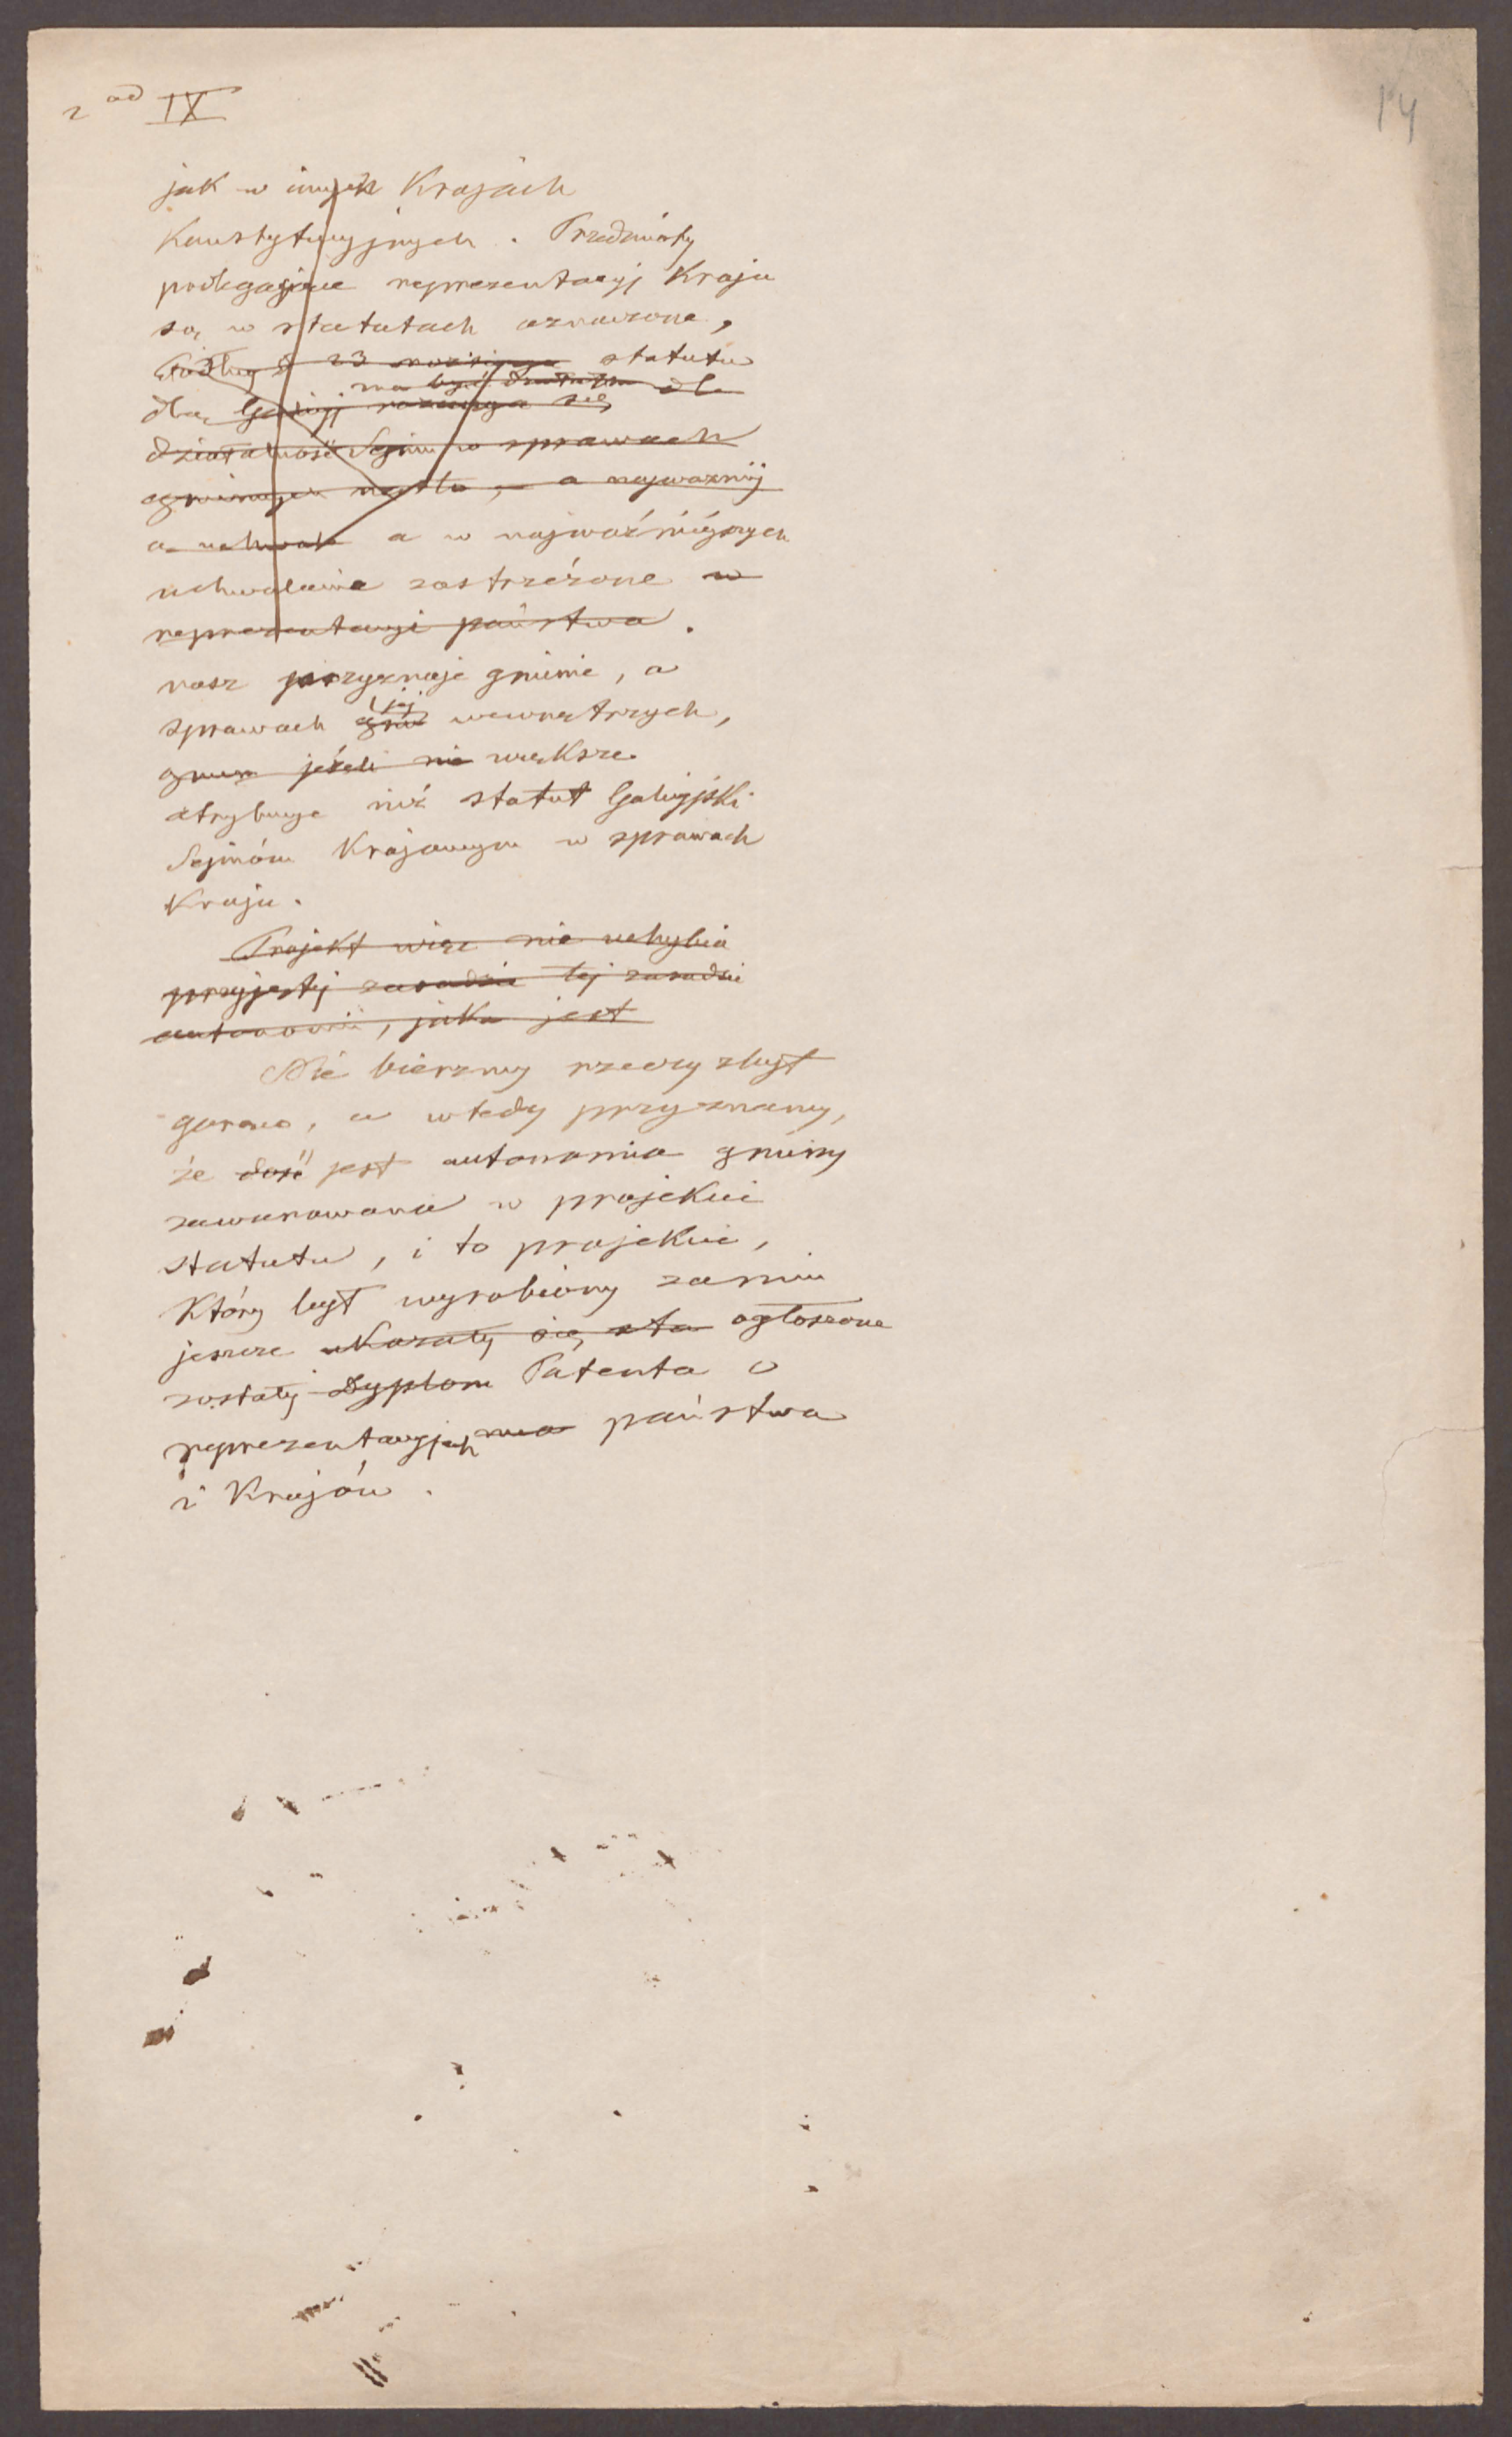 2 ad IX
14
jak w innych Krajach
Konstytucyjnych. Przedmioty
podlegające reprezentacyj Kraju
są w statutach oznaczone,
Podług § 23 statutu
ma być dla
dla Galicyj rozciąga się
działalność Sejmu w sprawach
a najważniej
a uchwał a w najważniéjszych
uchwalenie zastrzeżone w
reprezentacyi państwa.
nasz przyznaje gminie, a
sprawach gm jej wewnętrzych,
gmin jeżeli nie większe
atrybucye niż statut Galicyjski
Sejmóm Krajowym w sprawach
Kraju.
Projekt więc nie uchybia
przyjętej zasadzie tej zasadzie
autonomii, jaka jest
Nie bierzmy rzeczy zbyt
gorąco, a wtedy przyznamy,
że dość jest autonomia gminy
zawarowana w projekcie
statutu, i to projekcie,
Który był wyrobiony zanim
jeszcze ukazały się sta ogłoszone
zostały Dyplom Patenta o
reprezentacyjach państwa
i Krajów.